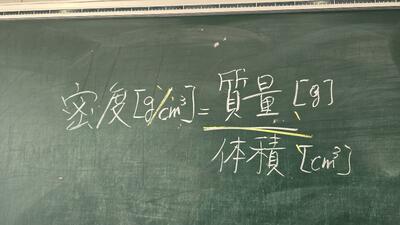 密度[g/cm³]=質量[g]
体積[cm³]